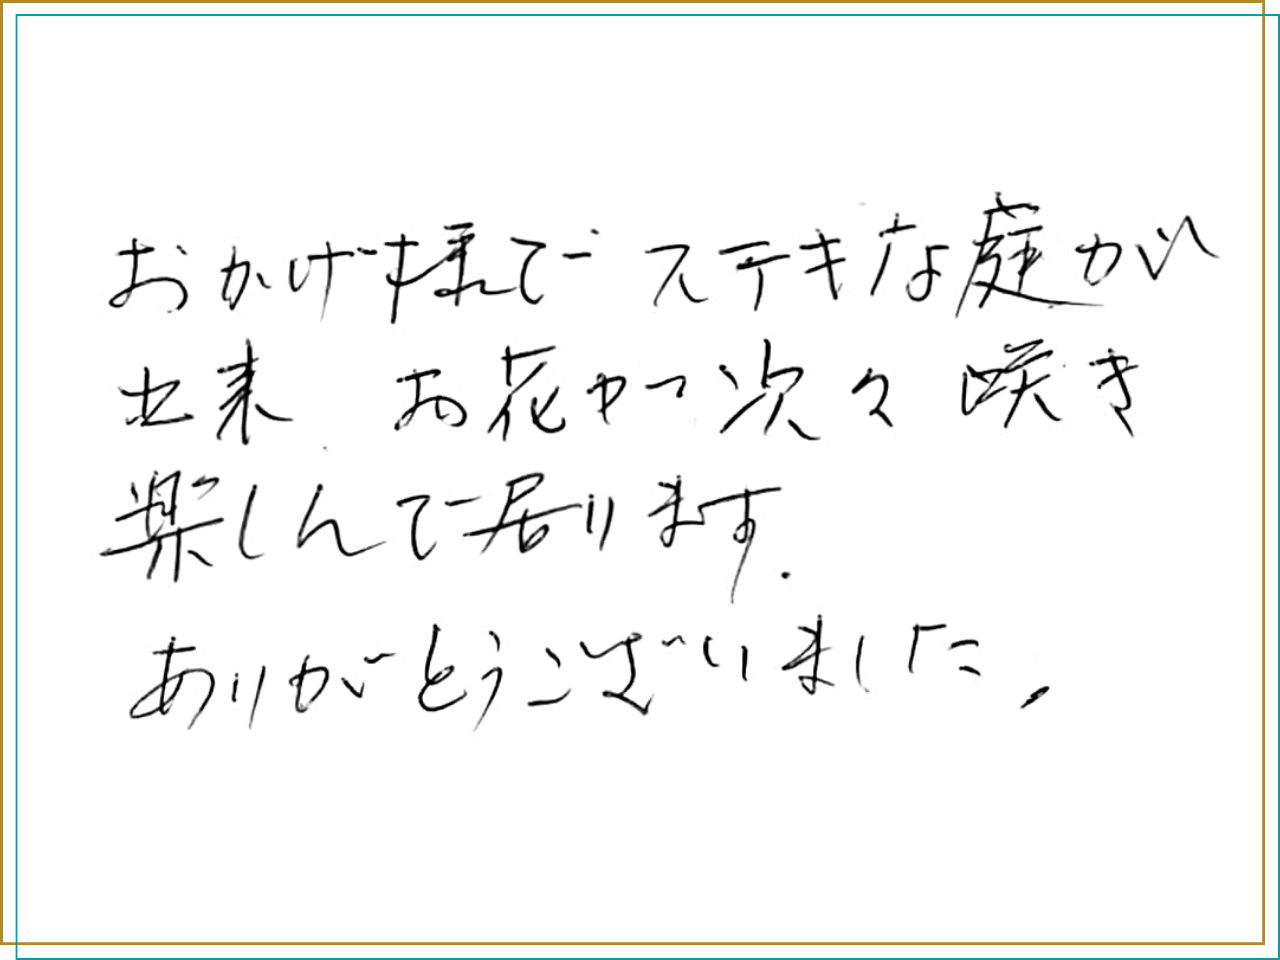 おかげ様で ステキな庭が
出来 お花が 次々 咲き
楽しんで居ります.
ありがとうございました。